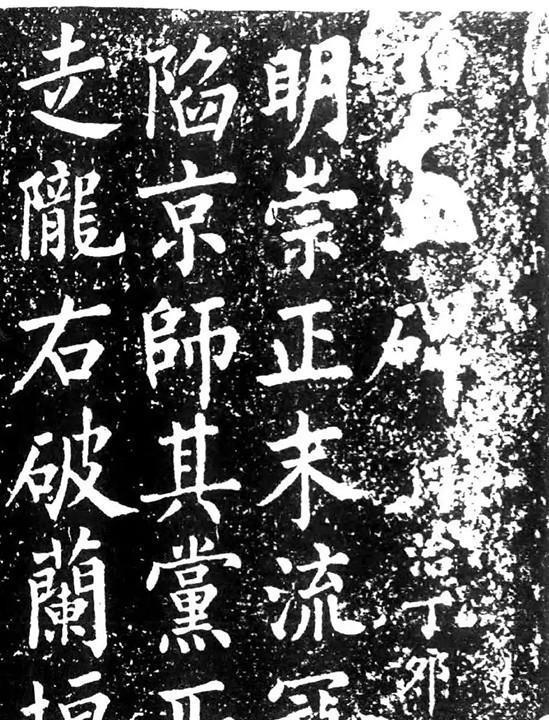 碑 治丁卯
明崇正末流寇
陷京師其黨
走隴右破蘭